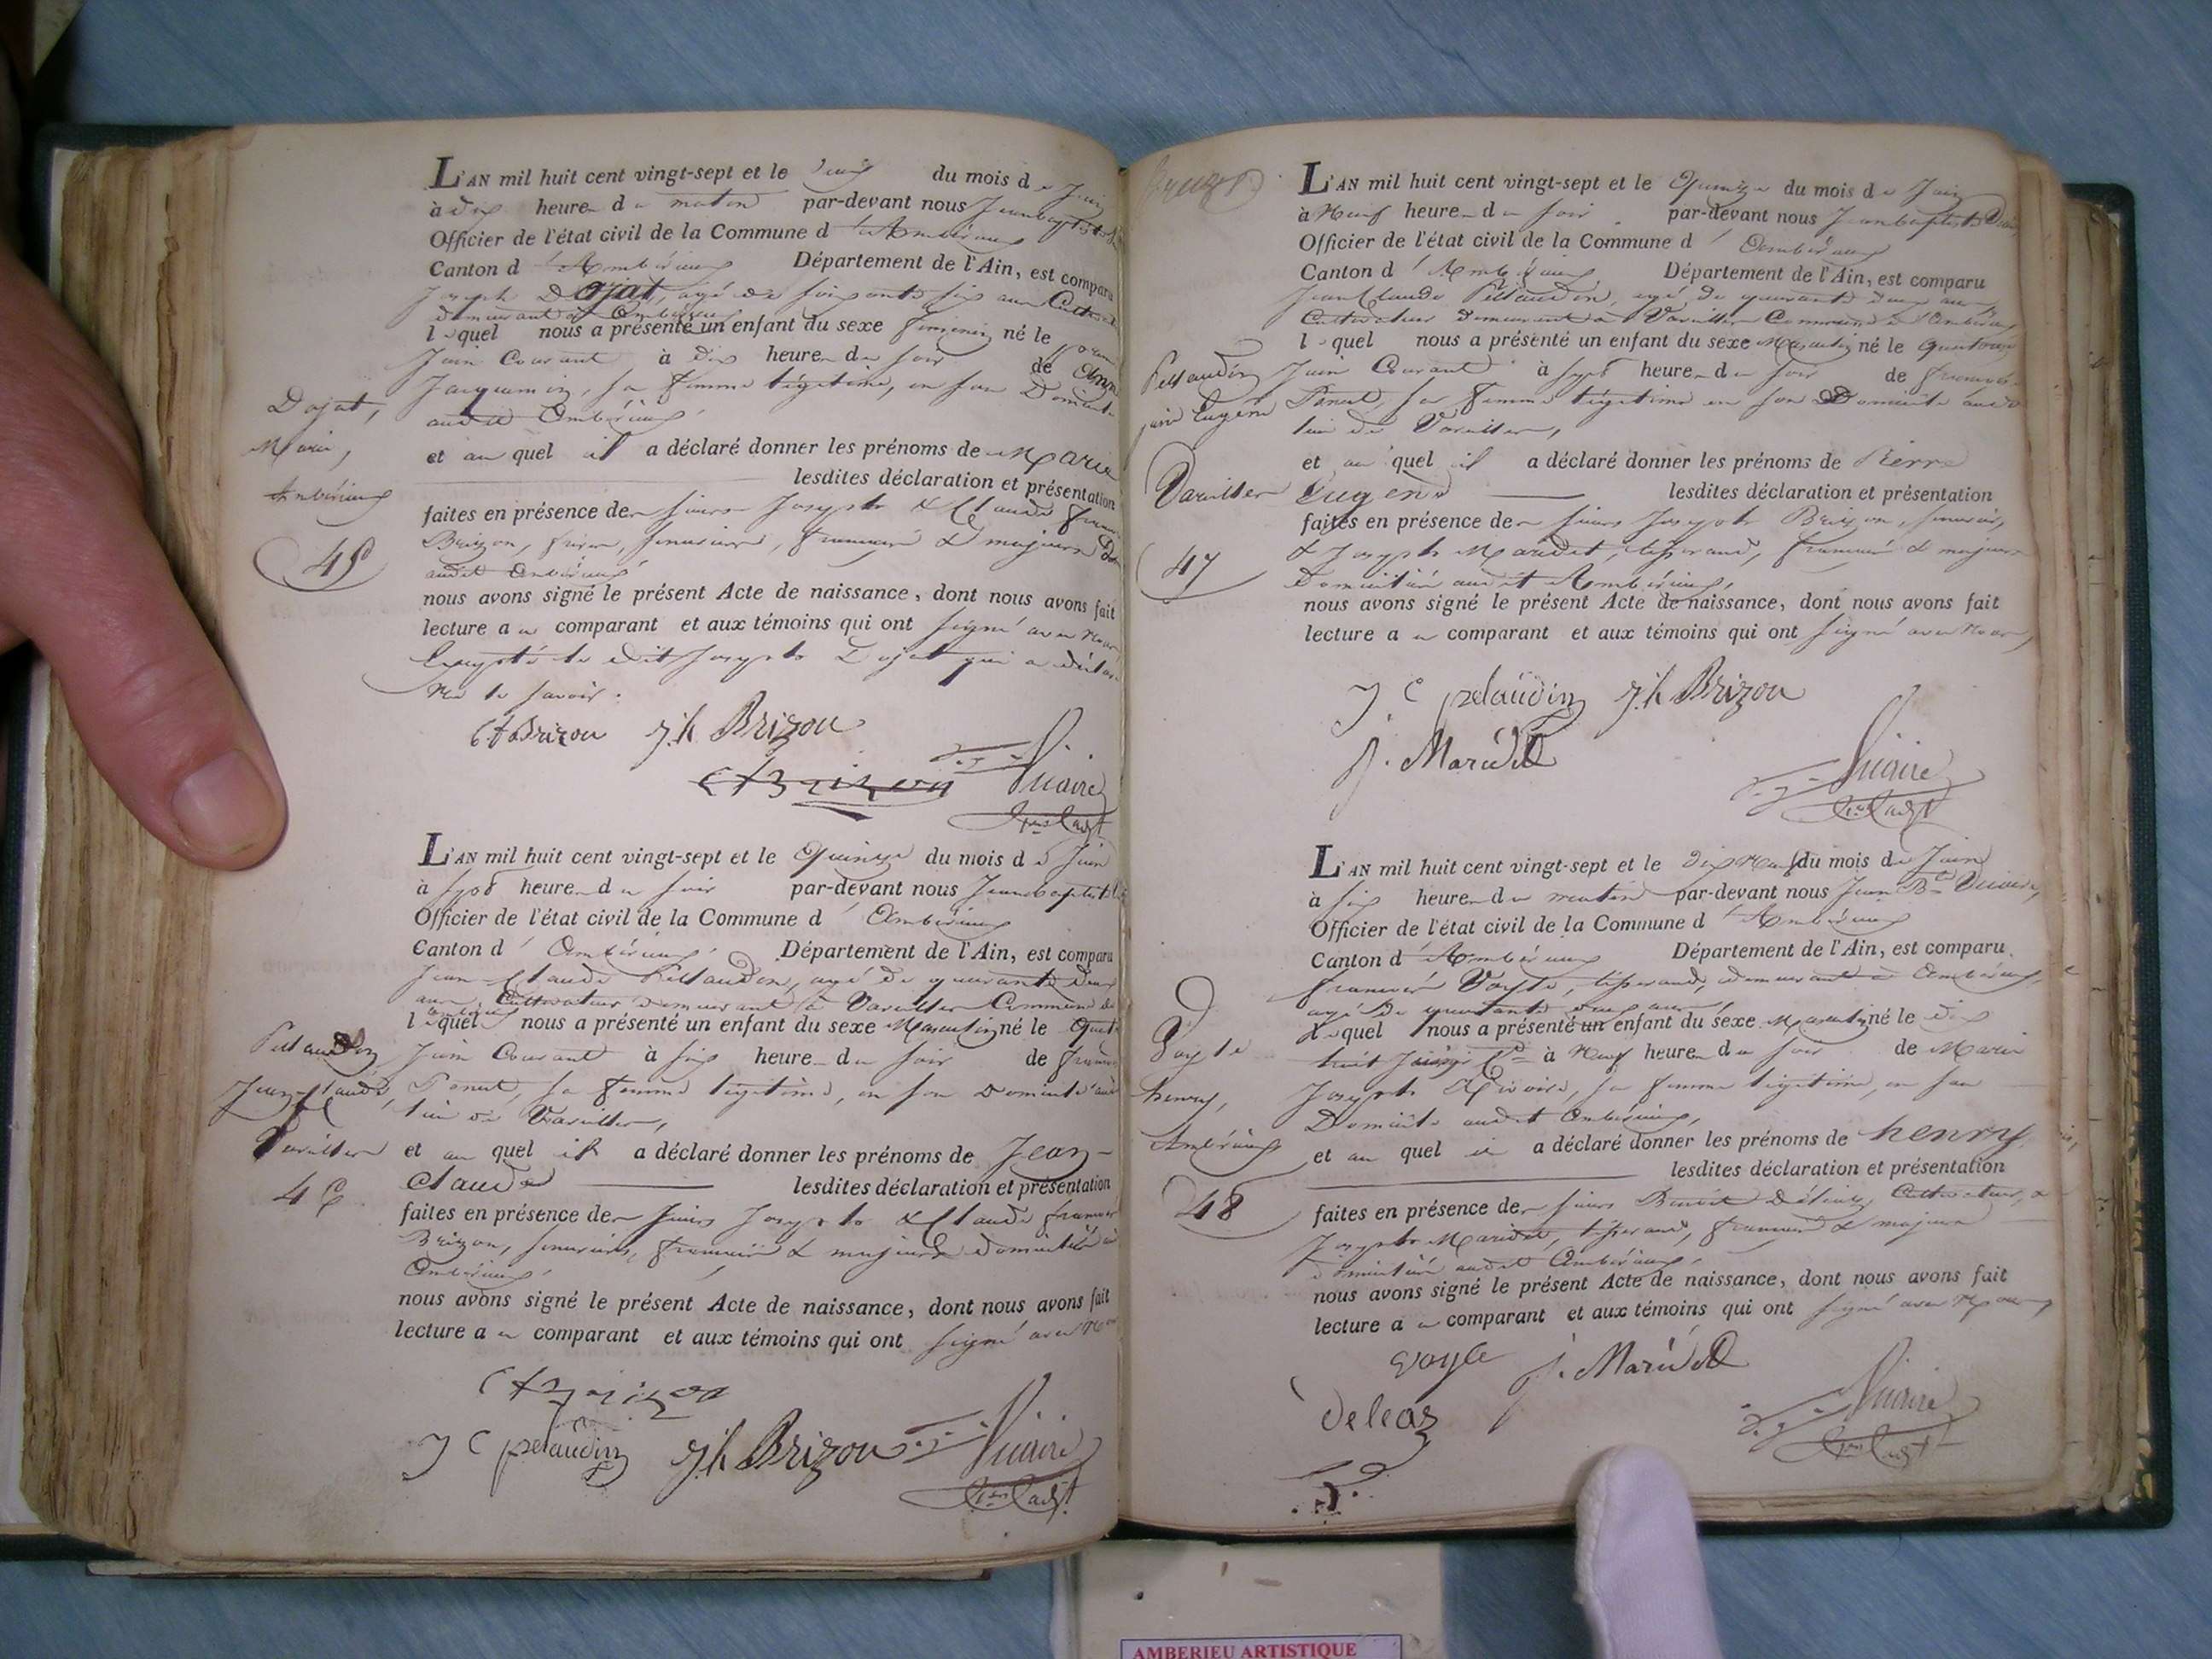 L'AN mil huit cent vingt-sept et le du mois de Juin
à dix heure du matin par-devant nous Jean baptiste
Officier de l'état civil de la Commune d'Ambérieux
Canton d'Ambérieux Département de l'Ain, est comparu
Joseph Dojat, agé de soixante six ans Cultivat
demeurant à Ambérieux
lequel nous a présenté un enfant du sexe feminin né le
Juin Courant à dix heure du soir de Anne
Jacquemin, sa femme légitime, en son Domicile
audit Ambérieux,
Dojat,
Marie,
Ambérieux
45
et au quel il a déclaré donner les prénoms de Marie
lesdites déclaration et présentation
faites en présence des sieurs Joseph & Claude françois
Brizon, frères, français & majeurs
audit Ambérieux
nous avons signé le présent Acte de naissance, dont nous avons fait
lecture au comparant et aux témoins qui ont signé avec nous
Excepté le dit Joseph Dojat qui a déclaré
ne le savoir.
Ct Brizon J.h Brizon
Vicaire
L'AN mil huit cent vingt-sept et le Quinze du mois de Juin
à sept heure du soir par-devant nous Jean baptiste
Officier de l'état civil de la Commune d'Ambérieux
Canton d'Ambérieux Département de l'Ain, est comparu
Jean Claude Pellaudin, agé de quarante deux
ans, Cultivateur demeurant à Vareilles Commune de
Ambérieux
lequel nous a présenté un enfant du sexe Masculin né le
Juin Courant à six heure du soir de
Panet, sa femme légitime, en son Domicile audit
lieu de Vareilles,
Pellaudin
Jean-Claude,
Vareilles
46
et au quel il a déclaré donner les prénoms de Jean-
Claude lesdites déclaration et présentation
faites en présence des sieurs Joseph & Claude françois
Brizon, français & majeurs domiciliés à
Ambérieux,
nous avons signé le présent Acte de naissance, dont nous avons fait
lecture au comparant et aux témoins qui ont signé avec nous
J C pelaudin J.h Brizon Vicaire
L'AN mil huit cent vingt-sept et le Quinze du mois de Juin
à Neuf heure du soir par-devant nous Jean baptiste
Officier de l'état civil de la Commune d'Ambérieux
Canton d'Ambérieux Département de l'Ain, est comparu
Jean Claude Pellaudin, agé de quarante deux ans,
Cultivateur demeurant à Vareilles Commune d'Ambérieux
lequel nous a présenté un enfant du sexe Masculin né le Quatorze
Juin Courant à sept heure du soir de
Panet, sa femme légitime en son Domicile audit
lieu de Vareilles,
Pellaudin
Eugène
Vareilles
47
et au quel il a déclaré donner les prénoms de Pierre
Eugene lesdites déclaration et présentation
faites en présence des sieurs Joseph Brizon,
& Joseph Maridet, tisserand, français & majeurs
Domiciliés audit Ambérieux,
nous avons signé le présent Acte de naissance, dont nous avons fait
lecture au comparant et aux témoins qui ont signé avec nous,
J. C pelaudin J.h Brizon
J. Maridet
Vicaire
L'AN mil huit cent vingt-sept et le dix Neuf du mois de Juin
à six heure du matin par-devant nous Jean Bte Vicaire,
Officier de l'état civil de la Commune d'Ambérieux
Canton d'Ambérieux Département de l'Ain, est comparu
françois Voyle, tisserand, demeurant à Ambérieux,
agé de quarante ans,
lequel nous a présenté un enfant du sexe Masculin né le dix
huit Juin à Neuf heure du soir de Marie
Joseph sa femme légitime, en son
Domicile audit Ambérieux,
henry,
Ambérieux
48
et au quel il a déclaré donner les prénoms de henry
lesdites déclaration et présentation
faites en présence des sieurs Benoit Cultivateur, &
Joseph Maridet, tisserand, français & majeurs
domiciliés audit Ambérieux,
nous avons signé le présent Acte de naissance, dont nous avons fait
lecture au comparant et aux témoins qui ont signé avec Nous,
voyle J. Maridet
Vicaire
AMBERIEU ARTISTIQUE